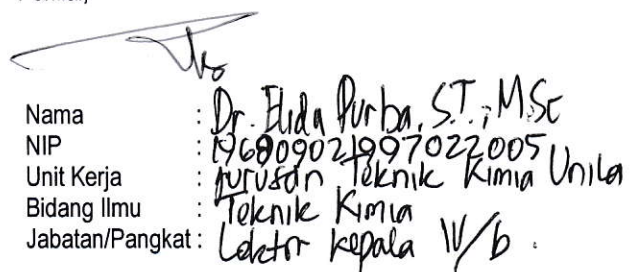 Nama : Dr. Elida Purba, S.T., M.Sc
NIP : 196809021997022005
Unit Kerja : Jurusan Teknik Kimia Unila
Bidang Ilmu : Teknik Kimia
Jabatan/Pangkat : Lektor Kepala IV/b.